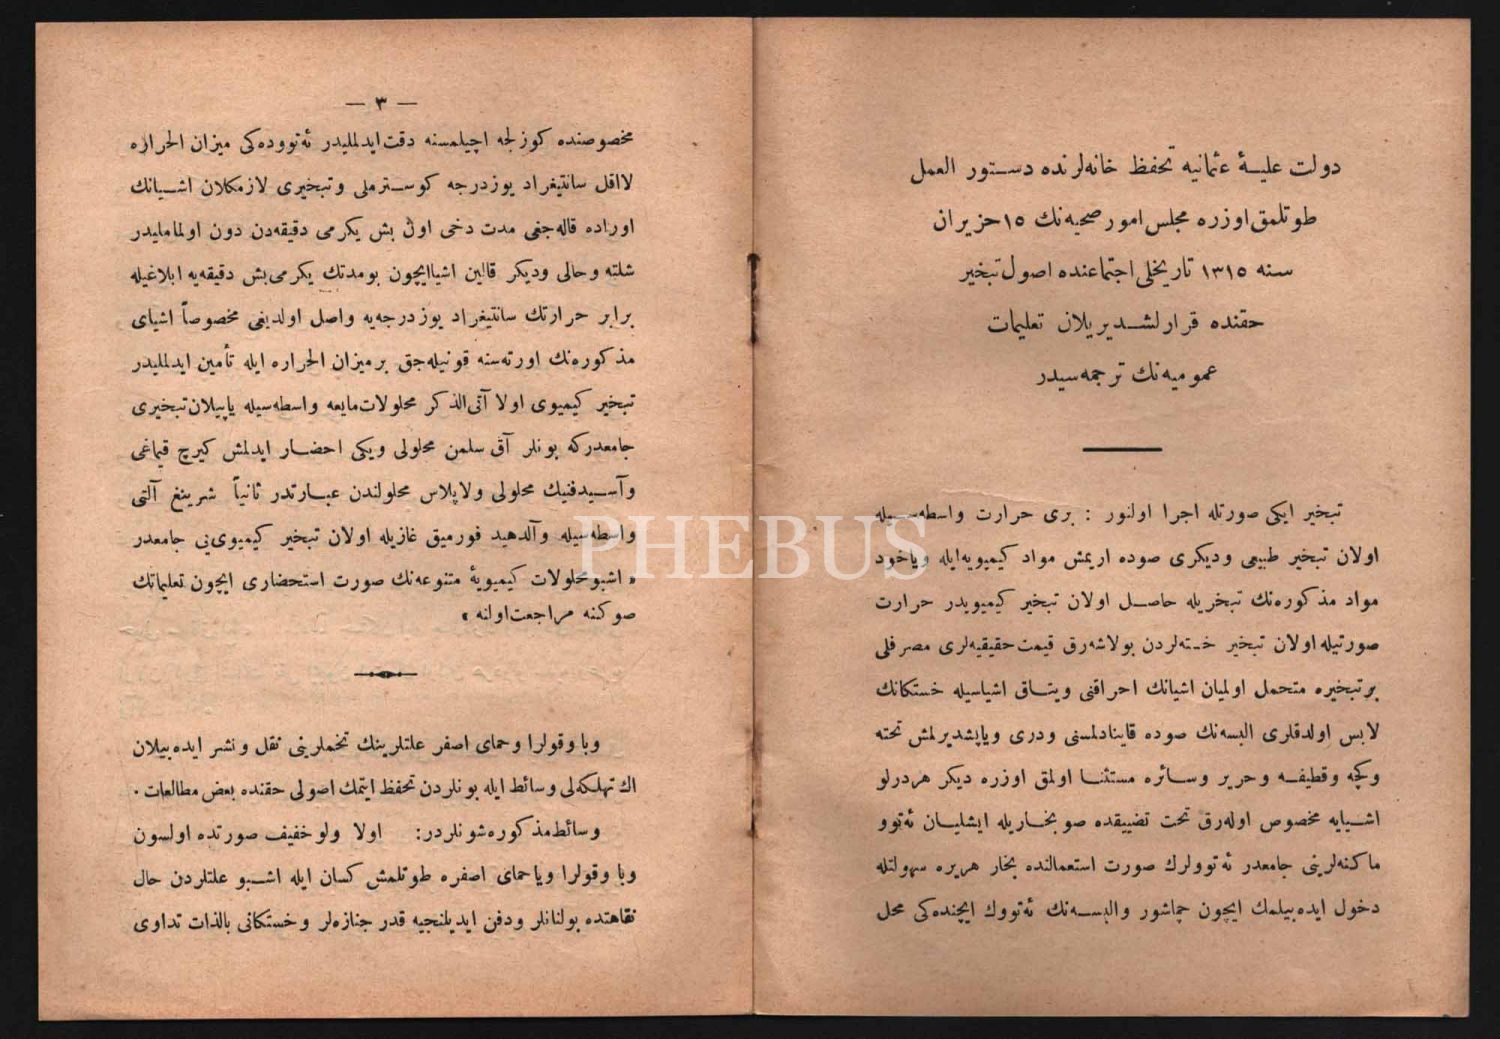 دولت علیهٔ عثمانیه تحفظ خانه‌لرنده دستور العمل
طوتلمق اوزره مجلس امور صحیه‌نك ١٥ حزیران
سنه ١٣١٥ تاریخلی اجتماعنده اصول تبخیر
حقنده قرارلشدیریلان تعلیمات
عمومیه‌نك ترجمه‌سیدر
تبخیر ایكی صورتله اجرا اولنور : بری حرارت واسطه‌سیله
اولان تبخیر طبیعی ودیكری صوده اریمش مواد كیمیویه ایله ویاخود
مواد مذكوره‌نك تبخریله حاصل اولان تبخیر كیمیویدر حرارت
صورتیله اولان تبخیر خسته‌لردن بولاشه‌رق قیمت حقیقیه‌لری مصرفلی
برتبخیره متحمل اولمیان اشیانك احراقنی ویتاق اشیاسیله خستكانك
لابس اولدقلری البسه‌نك صوده قاینادلمسنی ودری ویاپشدیرلمش تخته
وكچه وقطیفه وحریر وسائره مستثنا اولمق اوزره دیكر هردرلو
اشیایه مخصوص اوله‌رق تحت تضییقده صو بخاریله ایشلیان ئه‌توو
ماكنه‌لرینی جامعدر ئه‌توولرك صورت استعمالنده بخار هریره سهولتله
دخول ایده‌بیلمك ایچون چماشور والبسه‌نك ئه‌تووك ایچنده‌كی محل
— ٣ —
مخصوصنده كوزلجه اچیلمسنه دقت ایدلملیدر ئه‌تووده‌كی میزان الحراره
لااقل سانتیغراد یوزدرجه كوسترملی وتبخیری لازمكلان اشیانك
اوراده قاله‌جغی مدت دخی اون بش یكرمی دقیقه‌دن دون اولماملیدر
شلته وحالی ودیكر قالین اشیاایچون بومدتك یكرمی‌بش دقیقه‌یه ابلاغیله
برابر حرارتك سانتیغراد یوزدرجه‌یه واصل اولدیغی مخصوصاً اشیای
مذكوره‌نك اورته‌سنه قونیله‌جق برمیزان الحراره ایله تأمین ایدلملیدر
تبخیر كیمیوی اولا آتی‌الذكر محلولات‌مایعه واسطه‌سیله یاپیلان‌تبخیری
جامعدركه بونلر آق سلمن محلولی ویكی احضار ایدلمش كیرچ قیماغی
وآسیدفنیك محلولی ولاپلاس محلولندن عبارتدر ثانیاً شرینغ آلتی
واسطه‌سیله وآلدهید فورمیق غازیله اولان تبخیر كیمیوی‌یی جامعدر
« اشبومحلولات كیمیویهٔ متنوعه‌نك صورت استحضاری ایچون تعلیماتك
صوكنه مراجعت‌اولنه »
وبا وقولرا وحمای اصفر علتلرینك تخملرینی نقل ونشر ایده‌بیلان
اك تهلكه‌لی وسائط ایله بونلردن تحفظ ایتمك اصولی حقنده بعض مطالعات .
وسائط‌مذكوره شونلردر: اولا ولو خفیف صورتده اولسون
وبا وقولرا ویاحمای اصفره طوتلمش كسان ایله اشبو علتلردن حال
نقاهتده بولنانلر ودفن ایدیلنجیه قدر جنازه‌لر وخستكانی بالذات تداوی
PHEBUS